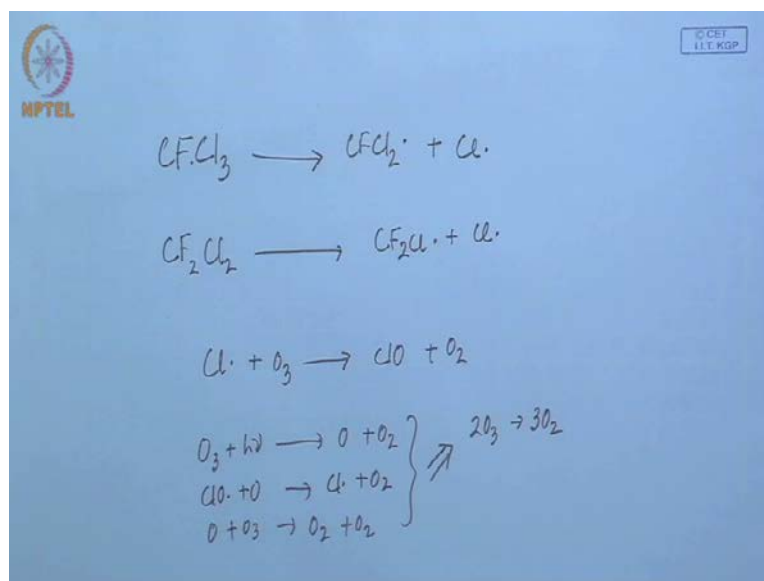 © CET
I.I.T. KGP
NPTEL
CFCl₃ ⟶ CFCl₂· + Cl·
CF₂Cl₂ ⟶ CF₂Cl· + Cl·
Cl· + O₃ ⟶ ClO + O₂
O₃ + hν ⟶ O + O₂
ClO· + O → Cl· + O₂
O + O₃ → O₂ + O₂
⇒ 2O₃ → 3O₂